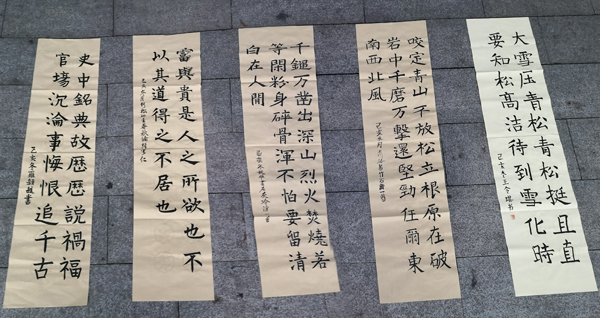 大雪压青松青松挺且直
要知松高洁待到雪化時
咬定青山不放松立根原在破
岩中千磨万擊還堅勁任爾東
南西北風
千鎚万凿出深山烈火焚燒若
等閑粉身碎骨渾不怕要留清
白在人間
富與貴是人之所欲也不
以其道得之不居也
史中銘典故歷歷說禍福
官場沉淪事悔恨追千古
己亥冬